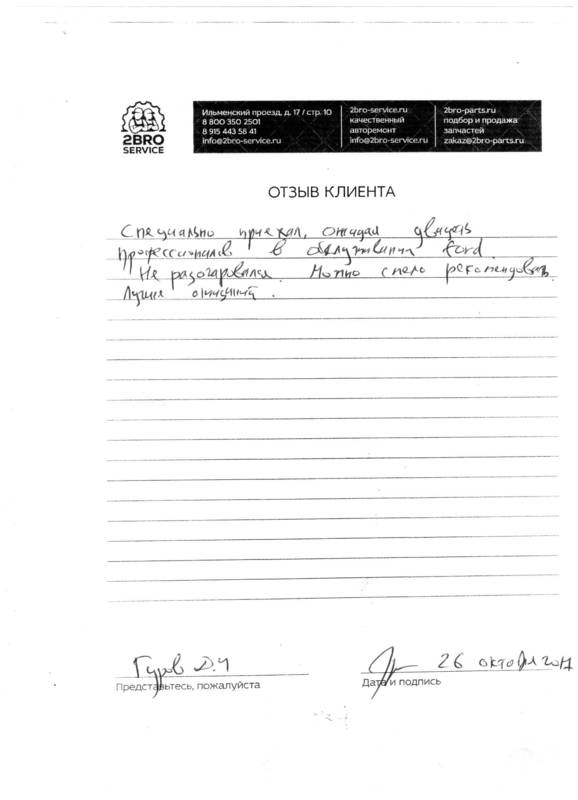 2BRO
SERVICE
Ильменский проезд, д. 17 / стр. 10
8 800 350 2501
8 915 443 58 41
info@2bro-service.ru
2bro-service.ru
качественный
авторемонт
info@2bro-service.ru
2bro-parts.ru
подбор и продажа
запчастей
zakaz@2bro-parts.ru
ОТЗЫВ КЛИЕНТА
Специально приехал, ожидал
профессионалов в обслуживании ford.
Не разочаровался. Можно смело рекомендовать.
Лучшие ожиданий.
Гуров Д.Ч
26 октября
Представьтесь, пожалуйста
Дата и подпись